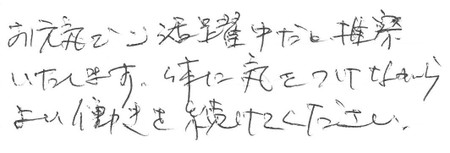 お元気でご活躍中だと推察
いたします。体に気をつけながら
よい働きを続けてください。